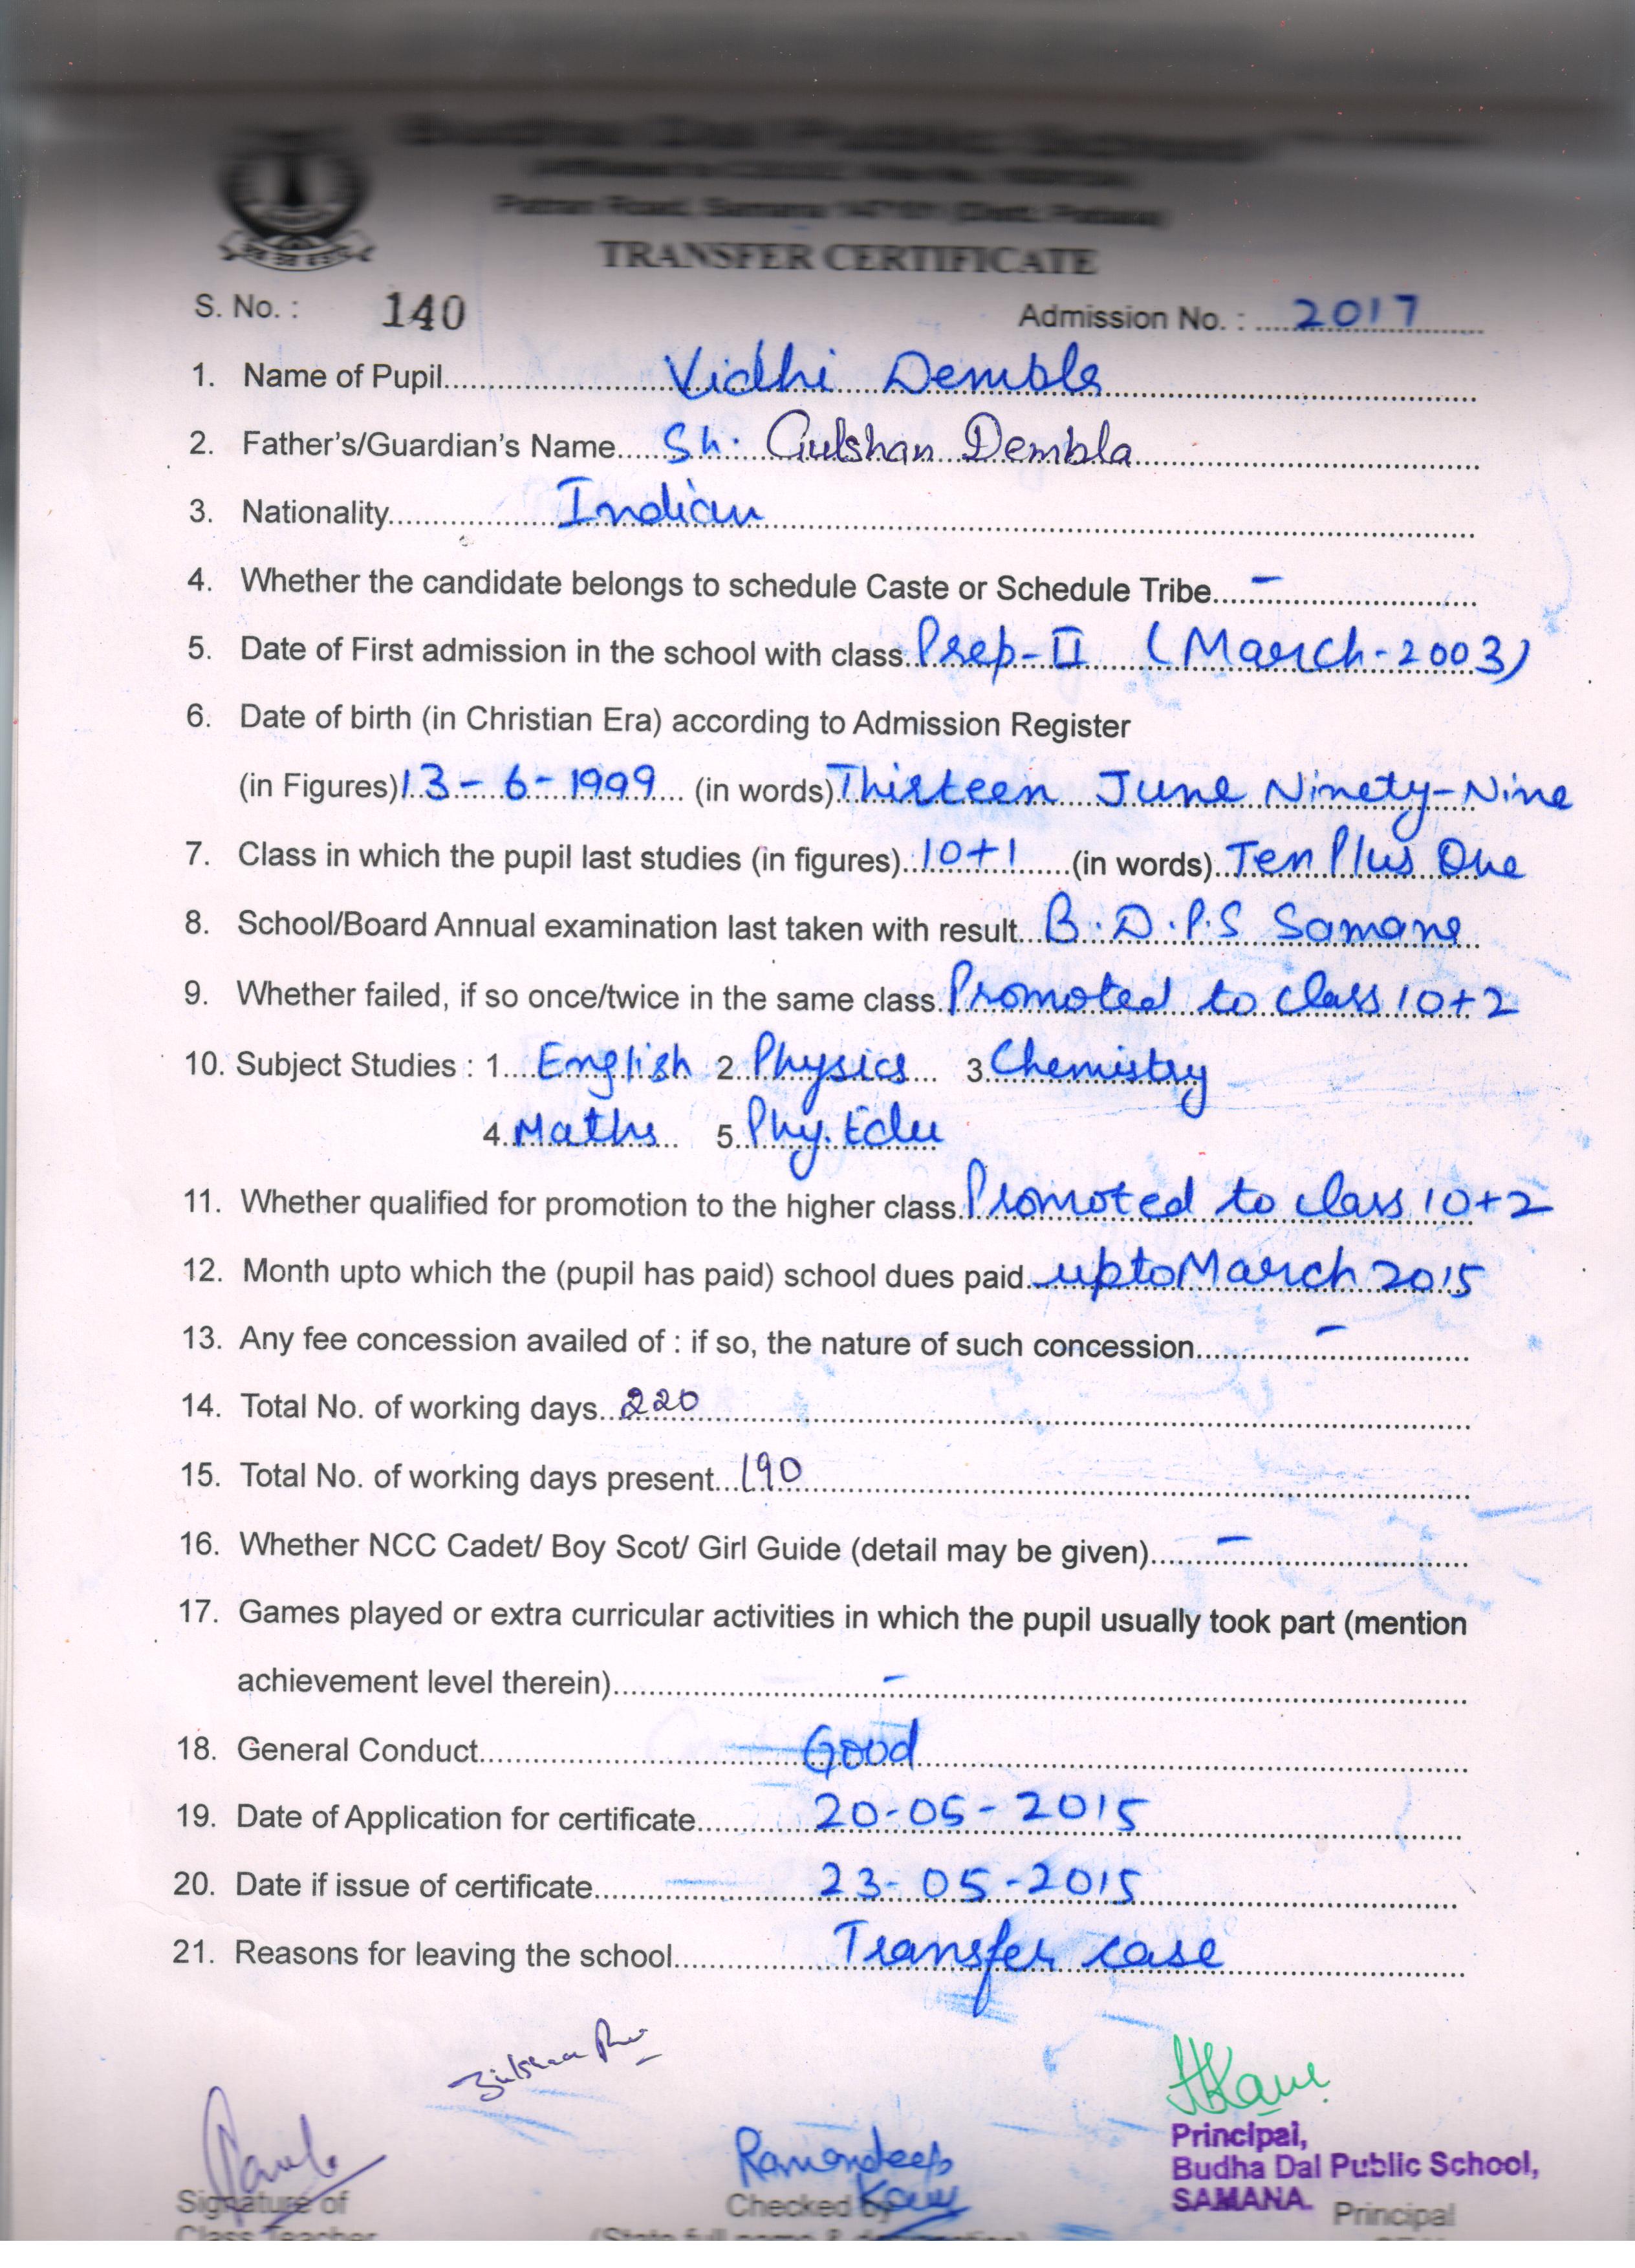 Budha Dal Public School
Patran Road, Samana 147101 (Distt. Patiala)
TRANSFER CERTIFICATE
S. No. : 140 Admission No. : 2017
1. Name of Pupil Vidhi Dembla
2. Father's/Guardian's Name Sh. Gulshan Dembla
3. Nationality Indian
4. Whether the candidate belongs to schedule Caste or Schedule Tribe –
5. Date of First admission in the school with class Prep-II (March-2003)
6. Date of birth (in Christian Era) according to Admission Register
(in Figures) 13-6-1999 (in words) Thirteen June Ninety-Nine
7. Class in which the pupil last studies (in figures) 10+1 (in words) Ten Plus One
8. School/Board Annual examination last taken with result B.D.P.S Samana
9. Whether failed, if so once/twice in the same class Promoted to class 10+2
10. Subject Studies : 1. English 2. Physics 3. Chemistry
4. Maths 5. Phy. Edu
11. Whether qualified for promotion to the higher class Promoted to class 10+2
12. Month upto which the (pupil has paid) school dues paid upto March 2015
13. Any fee concession availed of : if so, the nature of such concession –
14. Total No. of working days 220
15. Total No. of working days present 190
16. Whether NCC Cadet/ Boy Scot/ Girl Guide (detail may be given) –
17. Games played or extra curricular activities in which the pupil usually took part (mention
achievement level therein) –
18. General Conduct Good
19. Date of Application for certificate 20-05-2015
20. Date if issue of certificate 23-05-2015
21. Reasons for leaving the school Transfer case
Ramandeep
Kaur
Principal,
Budha Dal Public School,
SAMANA.
Signature of Checked by Principal
Class Teacher (State full name & designation)